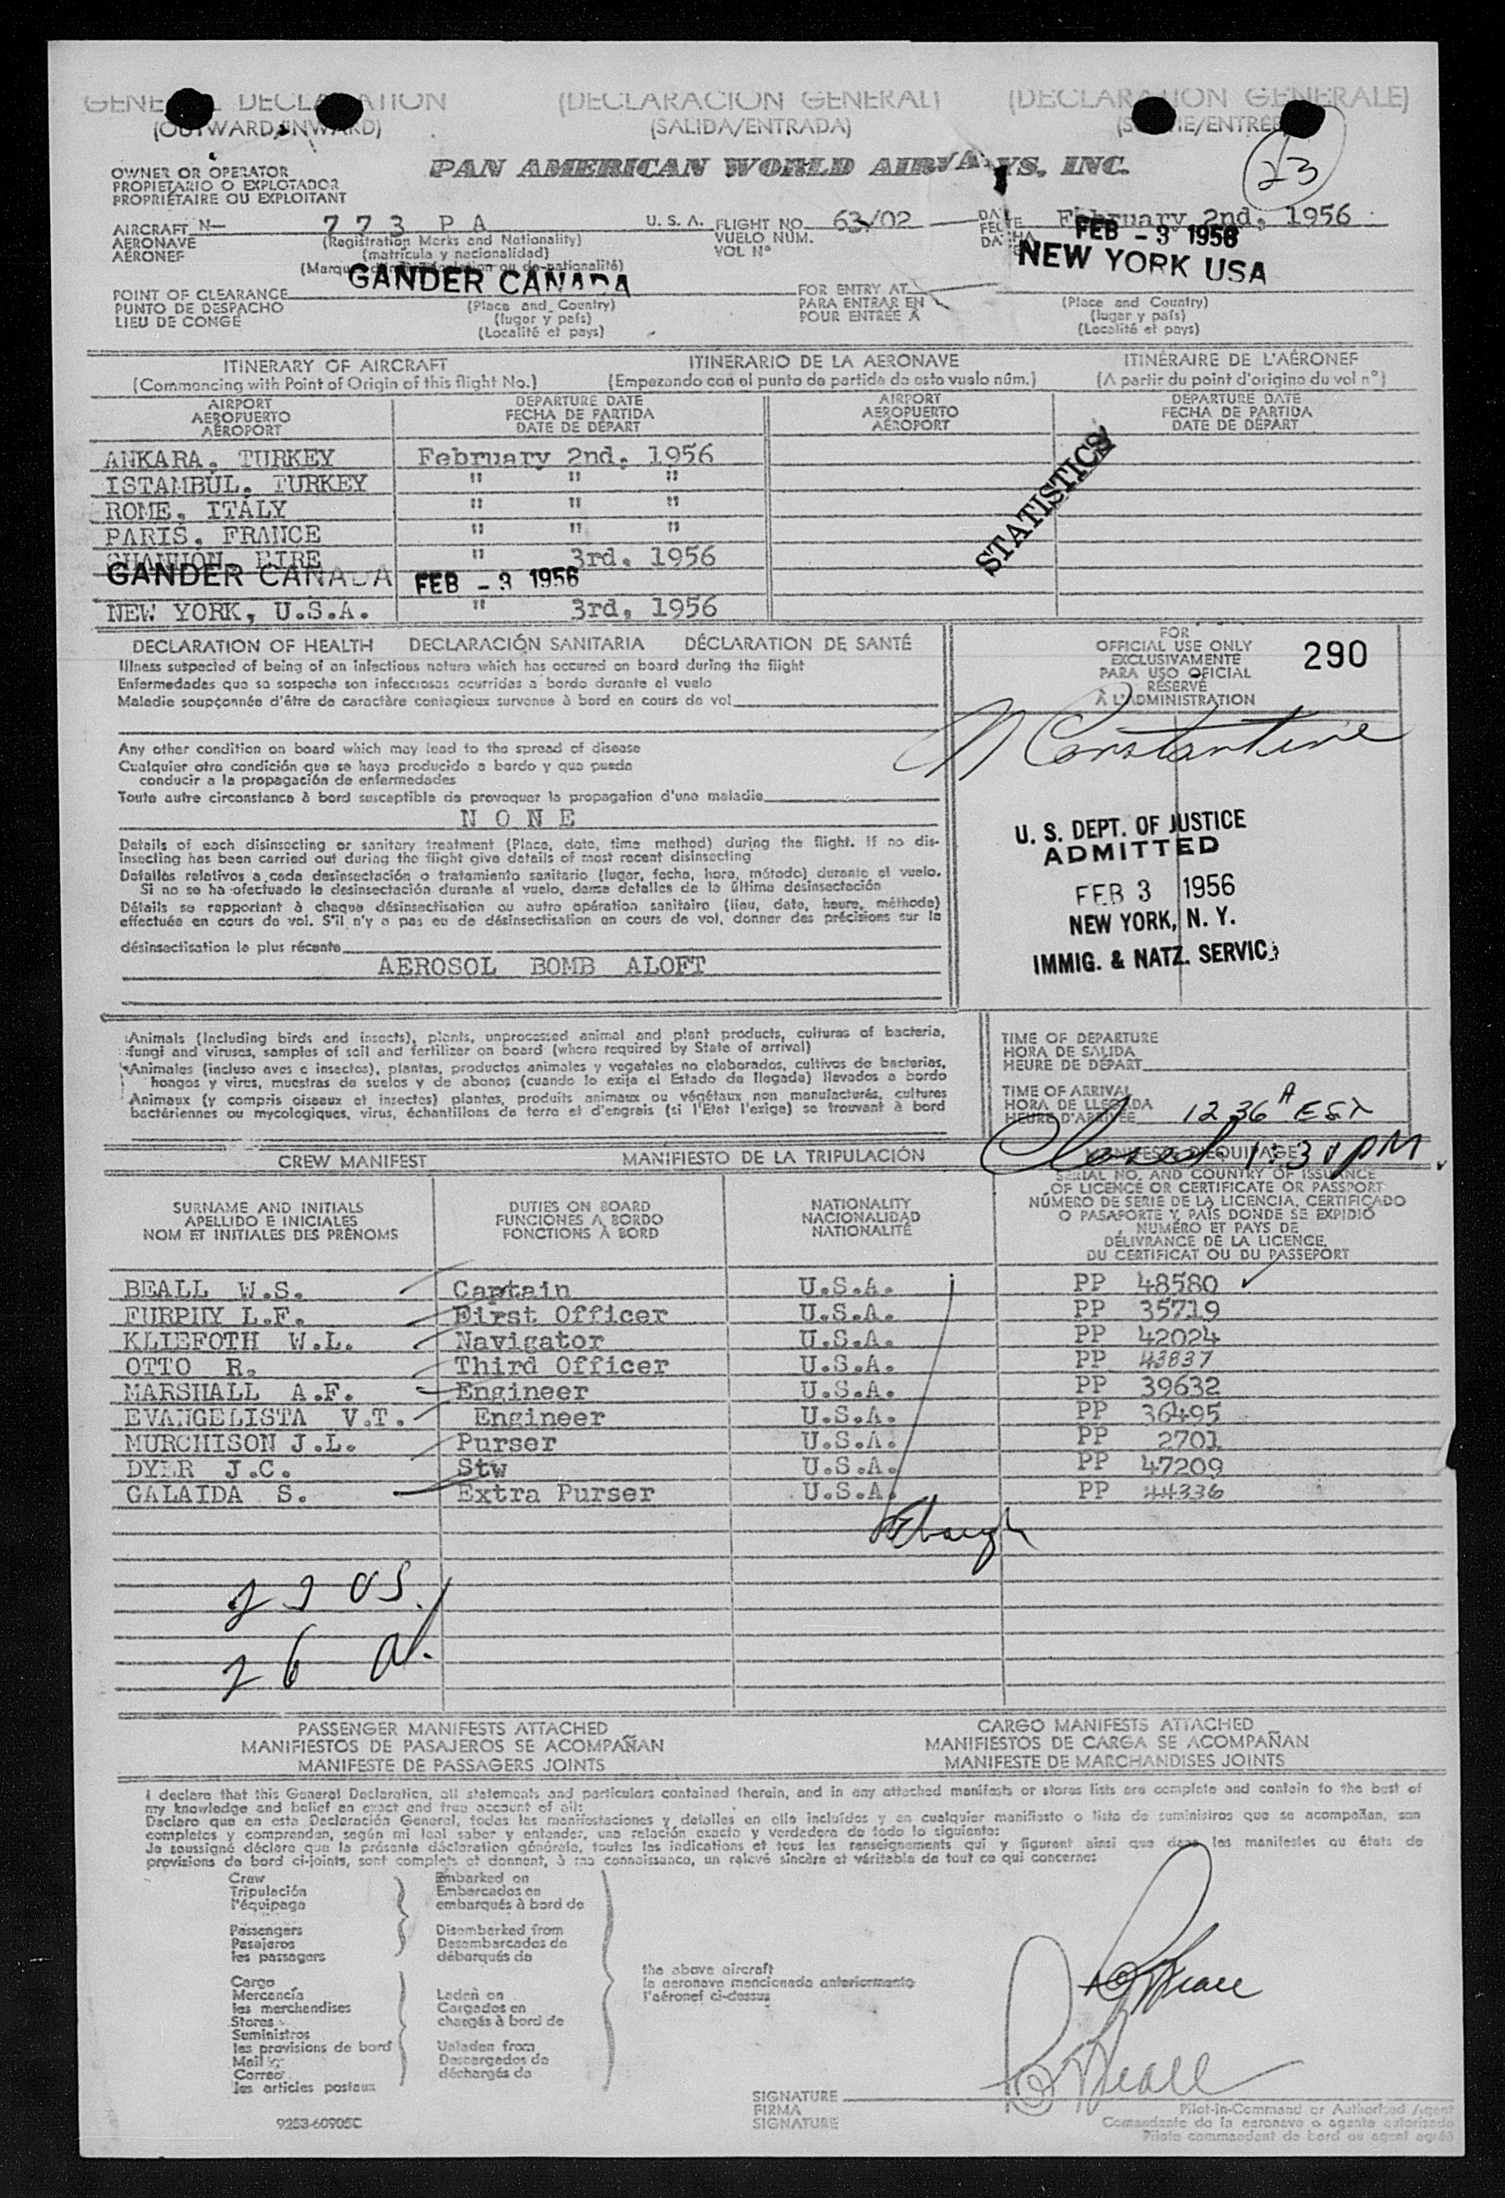 GENERAL DECLARATION (DECLARACION GENERAL) (DECLARATION GENERALE)
(OUTWARD/INWARD) (SALIDA/ENTRADA) (SORTIE/ENTRÉE)
23
OWNER OR OPERATOR
PROPIETARIO O EXPLOTADOR
PROPRIÉTAIRE OU EXPLOITANT
PAN AMERICAN WORLD AIRWAYS, INC.
AIRCRAFT N- 773 PA U. S. A. FLIGHT NO. 63/02 DATE February 2nd, 1956
AERONAVE (Registration Marks and Nationality) VUELO NÚM. FECHA FEB - 3 1956
AÉRONEF (matrícula y nacionalidad) VOL Nº DATE
GANDER CANADA NEW YORK USA
POINT OF CLEARANCE (Place and Country) FOR ENTRY AT (Place and Country)
PUNTO DE DESPACHO (lugar y país) PARA ENTRAR EN (lugar y país)
LIEU DE CONGÉ (Localité et pays) POUR ENTRÉE À (Localité et pays)
ITINERARY OF AIRCRAFT ITINERARIO DE LA AERONAVE ITINÉRAIRE DE L'AÉRONEF
(Commencing with Point of Origin of this flight No.) (Empezando con el punto de partida de este vuelo núm.) (A partir du point d'origine du vol nº)
AIRPORT DEPARTURE DATE AIRPORT DEPARTURE DATE
AEROPUERTO FECHA DE PARTIDA AEROPUERTO FECHA DE PARTIDA
AÉROPORT DATE DE DÉPART AÉROPORT DATE DE DÉPART
ANKARA, TURKEY February 2nd, 1956
ISTAMBUL, TURKEY " " "
ROME, ITALY " " "
PARIS, FRANCE " " "
SHANNON, EIRE " 3rd, 1956
GANDER CANADA FEB - 3 1956
NEW YORK, U.S.A. " 3rd, 1956
STATISTICS
DECLARATION OF HEALTH DECLARACIÓN SANITARIA DÉCLARATION DE SANTÉ
Illness suspected of being of an infectious nature which has occured on board during the flight
Enfermedades que se sospecha son infecciosas ocurridas a bordo durante el vuelo
Maladie soupçonnée d'être de caractère contagieux survenue à bord en cours de vol
FOR
OFFICIAL USE ONLY
EXCLUSIVAMENTE
PARA USO OFICIAL
RÉSERVÉ
À L'ADMINISTRATION
290
N Constantine
Any other condition on board which may lead to the spread of disease
Cualquier otra condición que se haya producido a bordo y que pueda
conducir a la propagación de enfermedades
Toute autre circonstance à bord susceptible de provoquer la propagation d'une maladie
NONE
Details of each disinsecting or sanitary treatment (Place, date, time method) during the flight. If no dis-
insecting has been carried out during the flight give details of most recent disinsecting
Detalles relativos a cada desinsectación o tratamiento sanitario (lugar, fecha, hora, método) durante el vuelo.
Si no se ha efectuado la desinsectación durante el vuelo, dense detalles de la última desinsectación
Détails se rapportant à chaque désinsectisation ou autre opération sanitaire (lieu, date, heure, méthode)
effectuée en cours de vol. S'il n'y a pas eu de désinsectisation en cours de vol, donner des précisions sur la
désinsectisation la plus récente
AEROSOL BOMB ALOFT
U. S. DEPT. OF JUSTICE
ADMITTED
FEB 3 1956
NEW YORK, N. Y.
IMMIG. & NATZ. SERVICE
Animals (Including birds and insects), plants, unprocessed animal and plant products, cultures of bacteria,
fungi and viruses, samples of soil and fertilizer on board (where required by State of arrival)
Animales (incluso aves e insectos), plantas, productos animales y vegetales no elaborados, cultivos de bacterias,
hongos y virus, muestras de suelos y de abonos (cuando lo exija el Estado de llegada) llevados a bordo
Animaux (y compris oiseaux et insectes) plantes, produits animaux ou végétaux non manufacturés, cultures
bactériennes ou mycologiques, virus, échantillons de terre et d'engrais (si l'Etat l'exige) se trouvant à bord
TIME OF DEPARTURE
HORA DE SALIDA
HEURE DE DÉPART
TIME OF ARRIVAL
HORA DE LLEGADA
HEURE D'ARRIVÉE 12 36 A EST
Closed 1:30 PM.
CREW MANIFEST MANIFIESTO DE LA TRIPULACIÓN MANIFESTE D'EQUIPAGE
SURNAME AND INITIALS
APELLIDO E INICIALES
NOM ET INITIALES DES PRÉNOMS
DUTIES ON BOARD
FUNCIONES A BORDO
FONCTIONS À BORD
NATIONALITY
NACIONALIDAD
NATIONALITÉ
SERIAL NO. AND COUNTRY OF ISSUANCE
OF LICENCE OR CERTIFICATE OR PASSPORT
NÚMERO DE SERIE DE LA LICENCIA, CERTIFICADO
O PASAPORTE Y PAÍS DONDE SE EXPIDIÓ
NUMÉRO ET PAYS DE
DÉLIVRANCE DE LA LICENCE,
DU CERTIFICAT OU DU PASSEPORT
BEALL W.S. Captain U.S.A. PP 48580
FURPHY L.F. First Officer U.S.A. PP 35719
KLIEFOTH W.L. Navigator U.S.A. PP 42024
OTTO R. Third Officer U.S.A. PP 43837
MARSHALL A.F. Engineer U.S.A. PP 39632
EVANGELISTA V.T. Engineer U.S.A. PP 36495
MURCHISON J.L. Purser U.S.A. PP 2701
DYER J.C. Stw U.S.A. PP 47209
GALAIDA S. Extra Purser U.S.A. PP 44336
US.
26 al.
PASSENGER MANIFESTS ATTACHED CARGO MANIFESTS ATTACHED
MANIFIESTOS DE PASAJEROS SE ACOMPAÑAN MANIFIESTOS DE CARGA SE ACOMPAÑAN
MANIFESTE DE PASSAGERS JOINTS MANIFESTE DE MARCHANDISES JOINTS
I declare that this General Declaration, all statements and particulars contained therein, and in any attached manifests or stores lists are complete and contain to the best of
my knowledge and belief an exact and true account of all:
Declaro que en esta Declaración General, todas las manifestaciones y detalles en ella incluídos y en cualquier manifiesto o lista de suministros que se acompañan, son
completos y comprenden, según mi leal saber y entender, una relación exacta y verdadera de todo lo siguiente:
Je soussigné déclare que la présente déclaration générale, toutes les indications et tous les renseignements qui y figurent ainsi que dans les manifestes ou états de
provisions de bord ci-joints, sont complets et donnent, à ma connaissance, un relevé sincère et véritable de tout ce qui concerne:
Crew Embarked on
Tripulación Embarcados en
l'équipage embarqués à bord de
Passengers Disembarked from
Pasajeros Desembarcados de
les passagers débarqués de
the above aircraft
la aeronave mencionada anteriormente
l'aéronef ci-dessus
Cargo
Mercancía Laden on
les marchandises Cargados en
Stores chargés à bord de
Suministros
les provisions de bord Unladen from
Mail Descargados de
Correo déchargés de
les articles postaux
W S Beall
W S Beall
SIGNATURE
FIRMA
SIGNATURE
Pilot-in-Command or Authorized Agent
Comandante de la aeronave o agente autorizado
Pilote commandant de bord ou agent agréé
9253-60905C